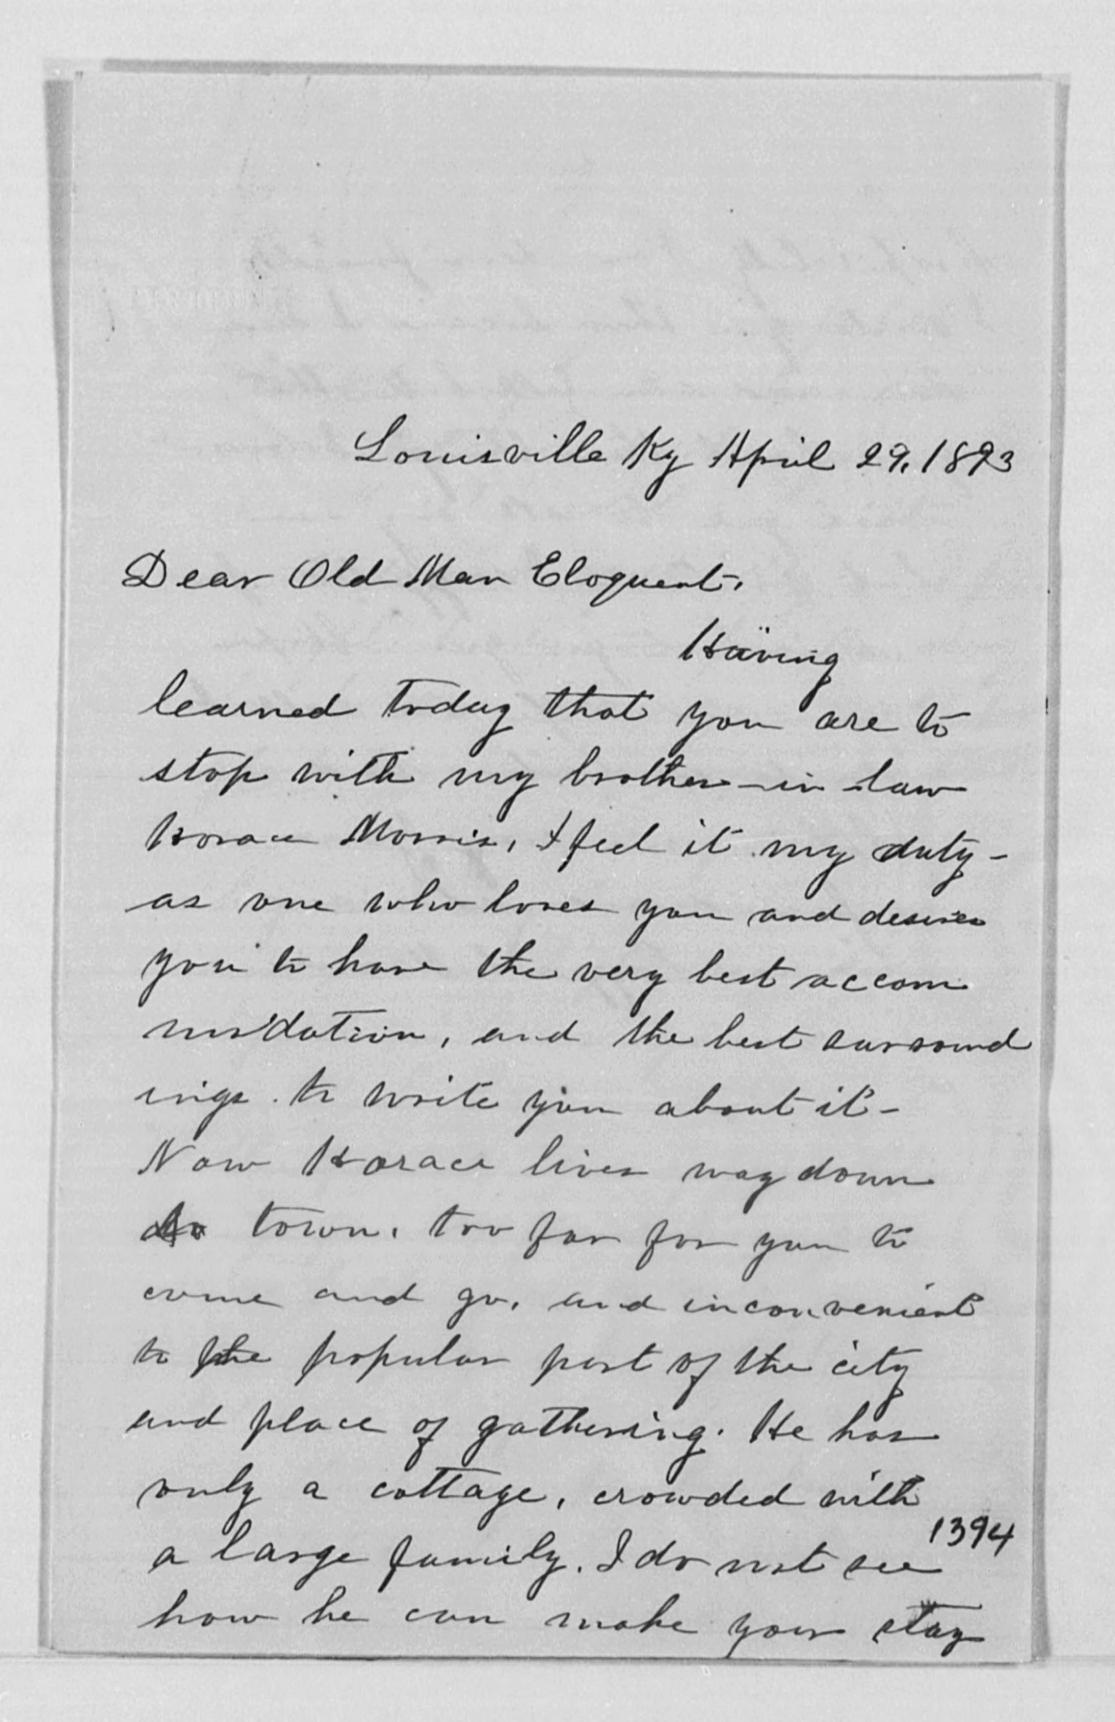 Louisville Ky April 29, 1893
Dear Old Man Eloquent,
Having
learned today that you are to
stop with my brother-in-law
Horace Morris, I feel it my duty -
as one who loves you and desires
you to have the very best accom
modation, and the best surround
ings to write you about it -
Now Horace lives way down
town, too far for you to
come and go, and inconvenient
to the popular part of the city
and place of gathering. He has
only a cottage, crowded with
1394
a large family. I do not see
how he can make your stay